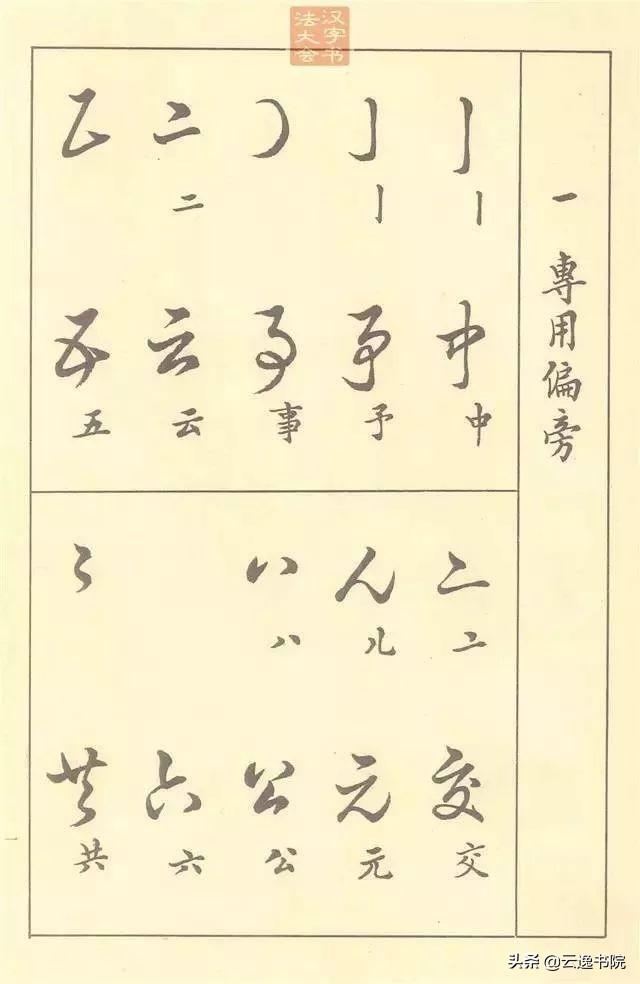 汉字书
法大会
一 專用偏旁
丨 亅 二
丨 亅 二
中 予 事 云 五
中 予 事 云 五
亠 儿 八
亠 儿 八
交 元 公 六 共
交 元 公 六 共
一
头条 @云逸书院